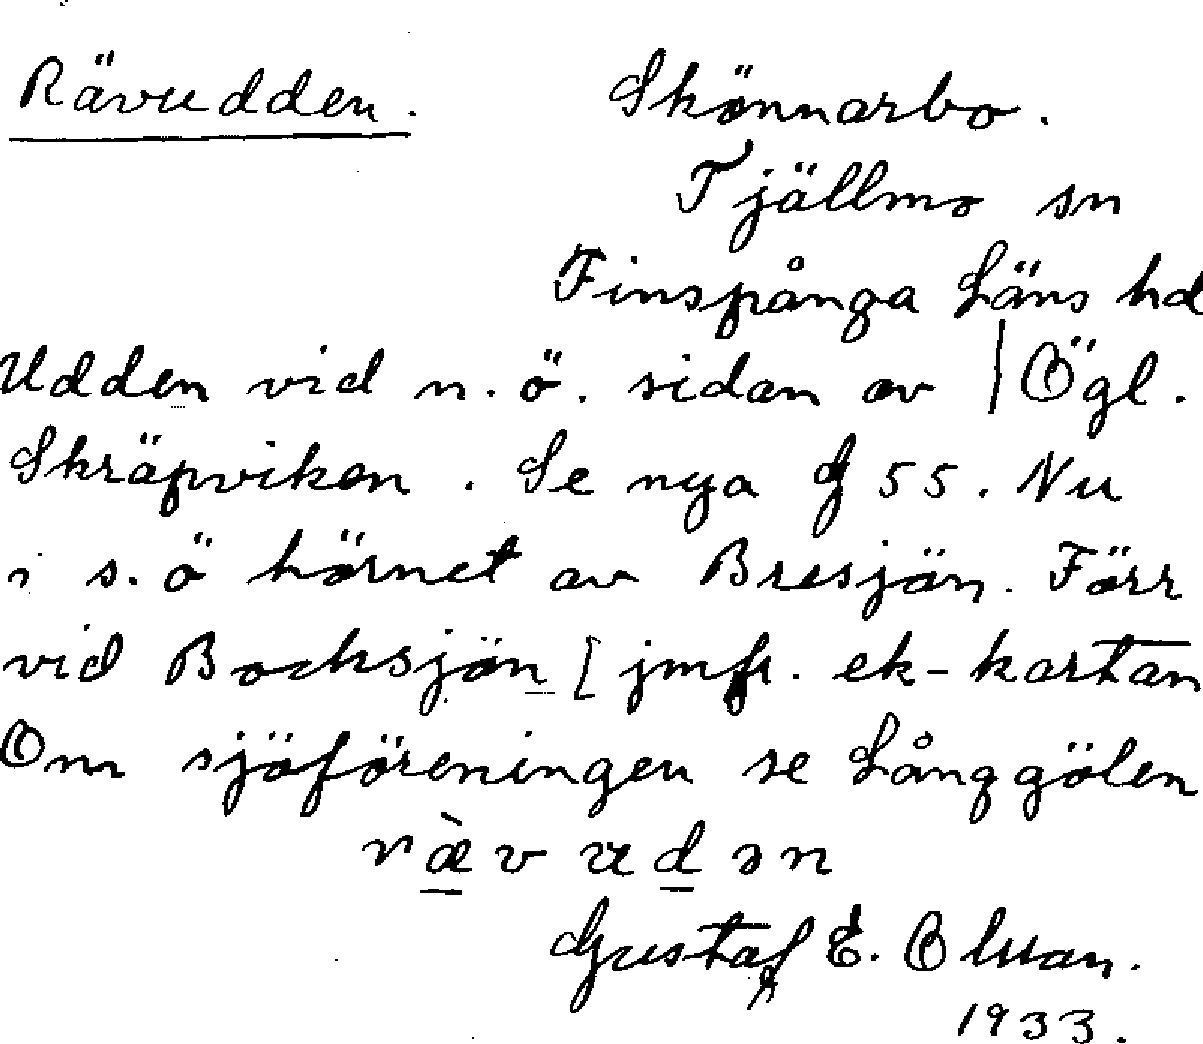 Rävudden. Skönnarbo.
Tjällmo sn
Finspånga Läns hd
Udden vid n.ö. sidan av | Ögl.
Skräpviken. Se nya 55. Nu
i s.ö hörnet av Bresjön. Förr
vid Bocksjön [ jmfr. ek-kartan
Om sjöföreningen se Långgölen
rævudən
Gustaf E. Olman.
1933.